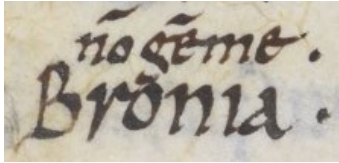 n̄o gēme.
Brōnia.